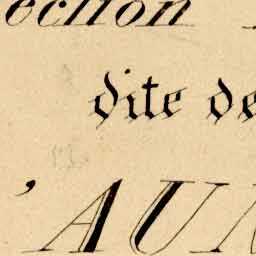 ection
dite de
'AUN